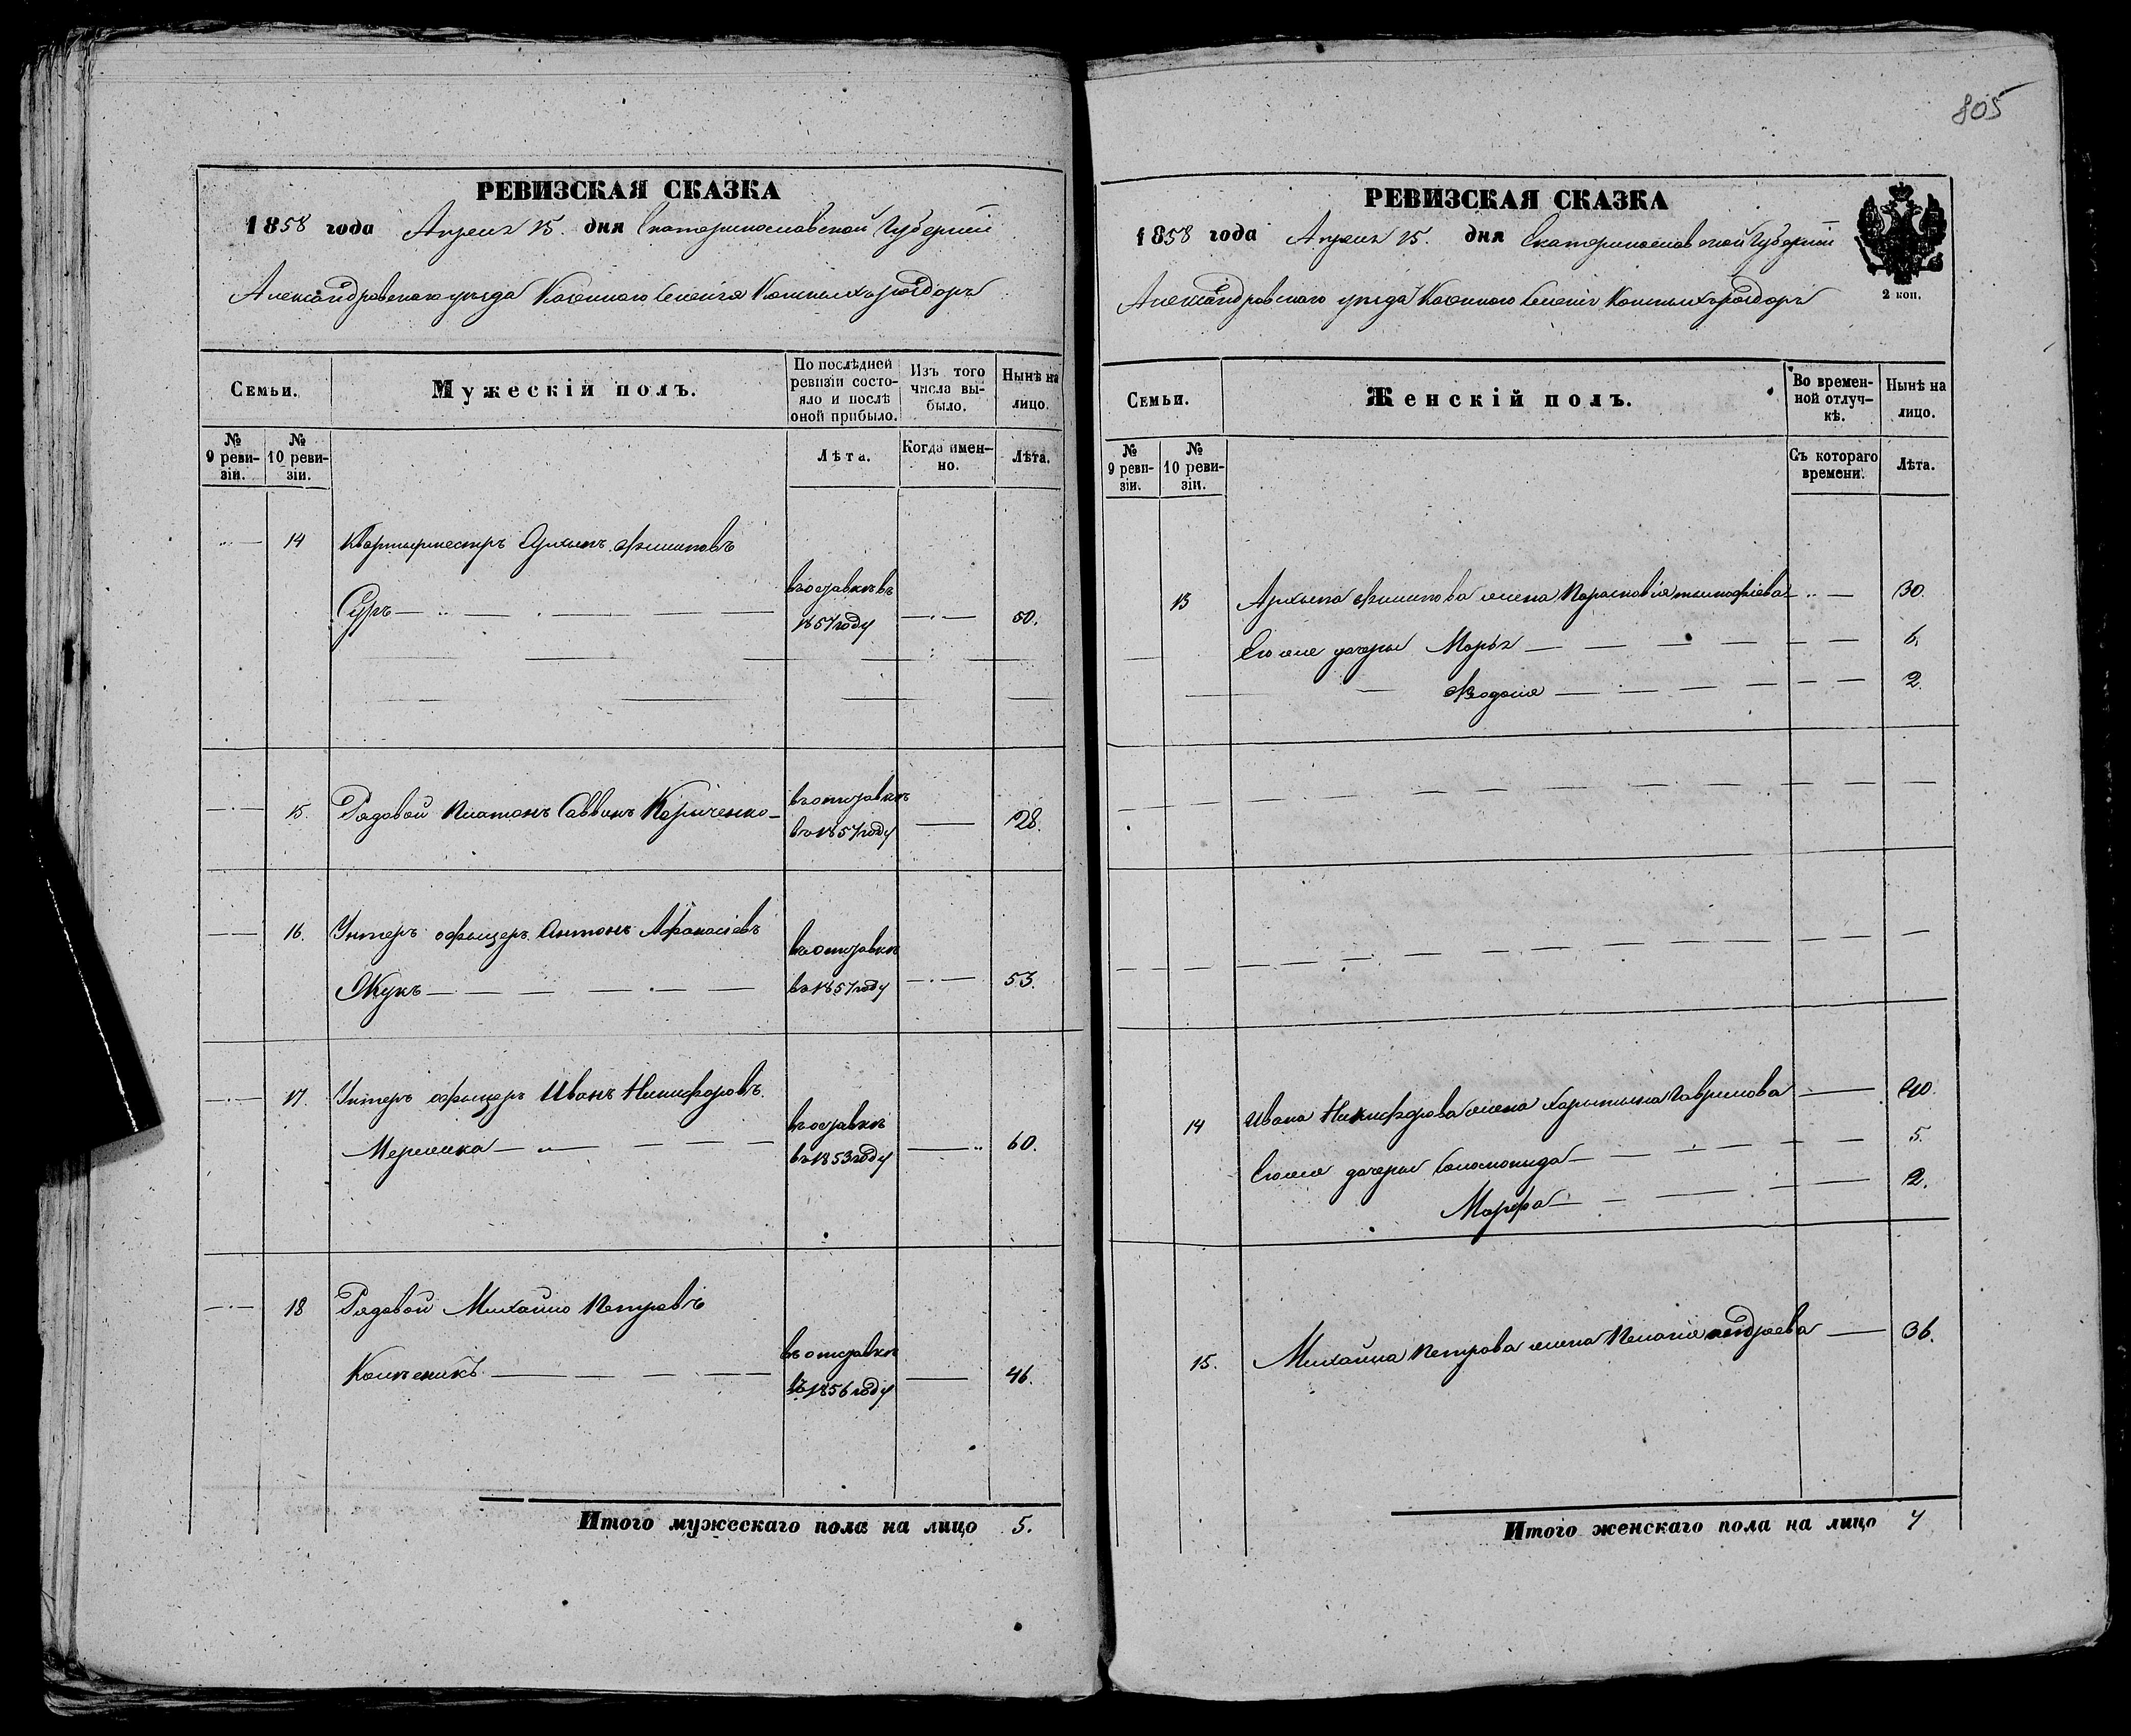 805
РЕВИЗСКАЯ СКАЗКА
1858 года Апреля 15. дня Екатеринославской Губерніи
Александровскаго уезда Казеннаго Селенія Конныхъ роздоръ
Семьи.
Мужескій полъ.
По послѣдней ревизіи состояло и послѣ оной прибыло.
Изъ того числа выбыло.
Нынѣ на лицо.
№ 9 ревизіи.
№ 10 ревизіи.
Лѣта.
Когда именно.
Лѣта.
14 Квартирместръ Архыпъ Филиповъ
въ 1857 году 50.
15. Рядовой Платонъ Саввинъ
въ отставкѣ
въ 1857 году 28.
16. Унтеръ офыцеръ Антонъ Афанасіевъ
въ отставкѣ
Жукъ въ 1857 году 53.
17. Унтеръ офыцеръ Иванъ Никифоровъ
въ 1853 году 60.
18 Рядовой Михайло Петровъ
въ отставкѣ
въ 1856 году 46.
Итого мужескаго пола на лицо 5.
РЕВИЗСКАЯ СКАЗКА
2 коп.
1858 года Апреля 15. дня Екатеринославской Губерніи
Александровскаго уезда Казеннаго Селенія Конныхъ роздоръ
Семьи.
Женскій полъ.
Во временной отлучкѣ.
Нынѣ на лицо.
№ 9 ревизіи.
№ 10 ревизіи.
Съ котораго времени.
Лѣта.
13 Архыпа Филипова жена Парасковія тимофіева 30.
Его же дочеры Марья 6.
Феодосия 2.
14 Ивана Никифорова жена Харытына Гаврилова 40.
Его же дочеры 5.
Марфа 2.
15. Михайла Петрова жена Пелагия андреева 36.
Итого женскаго пола на лицо 7